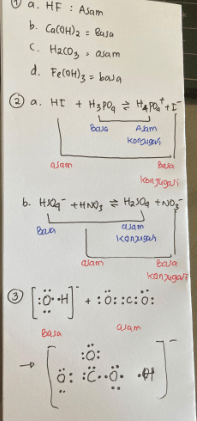 ① a. HF : Asam
b. Ca(OH)₂ = Basa
c. H₂CO₃ = asam
d. Fe(OH)₃ = basa
② a. HI + H₃PO₄ ⇌ H₄PO₄⁺ + I⁻
Basa Asam
konjugasi
asam Basa
konjugasi
b. + HNO₃ ⇌ + NO₃⁻
Basa asam
konjugasi
asam Basa
konjugasi
③ [:Ö··H]⁻ + :Ö::C:Ö:
Basa asam
→ [ :Ö:
:Ö: :C··Ö: ·H ]⁻